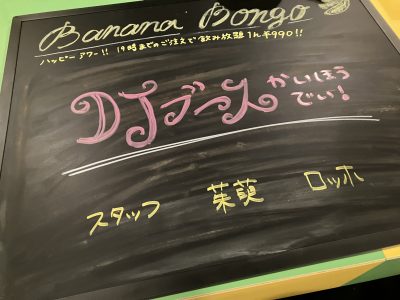 Banana Bongo
ハッピーアワー!! 19時までのご注文で飲み放題1h¥990!!
DJブース かいほう
でい!
スタッフ 茱萸 ロッホ